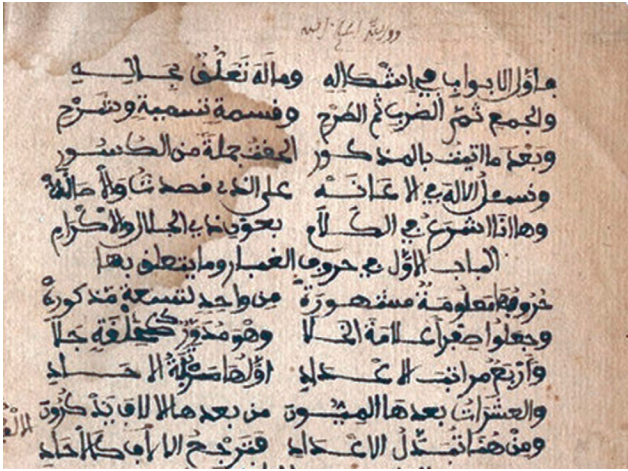 فاول الابواب في اشكاله وماله تعلق بحاله
والجمع ثم الضرب ثم الطرح وقسمة تسمية وشرح
وبعد ما اتيت بالمذكور الحقت جملة من الكسور
ونسئل الاله في الاعانه على الذي قصدت
وها انا اشرع في الكلام بعون ذي الجلال والاكرام
الباب الاول في حروف الغبار وما يتعلق بها
حروفه معلومة مشهورة من واحد لتسعة مذكورة
وجعلوا صفرا علامة الخلا وهو مدور كحلقة جلا
واربع مراتب الاعداد اولها منزلة الاحاد
والعشرات بعدها الميون من بعدها الالاف يذكرون
ومن هنا تبدل الاعداد فترجع الالاف كالاحاد